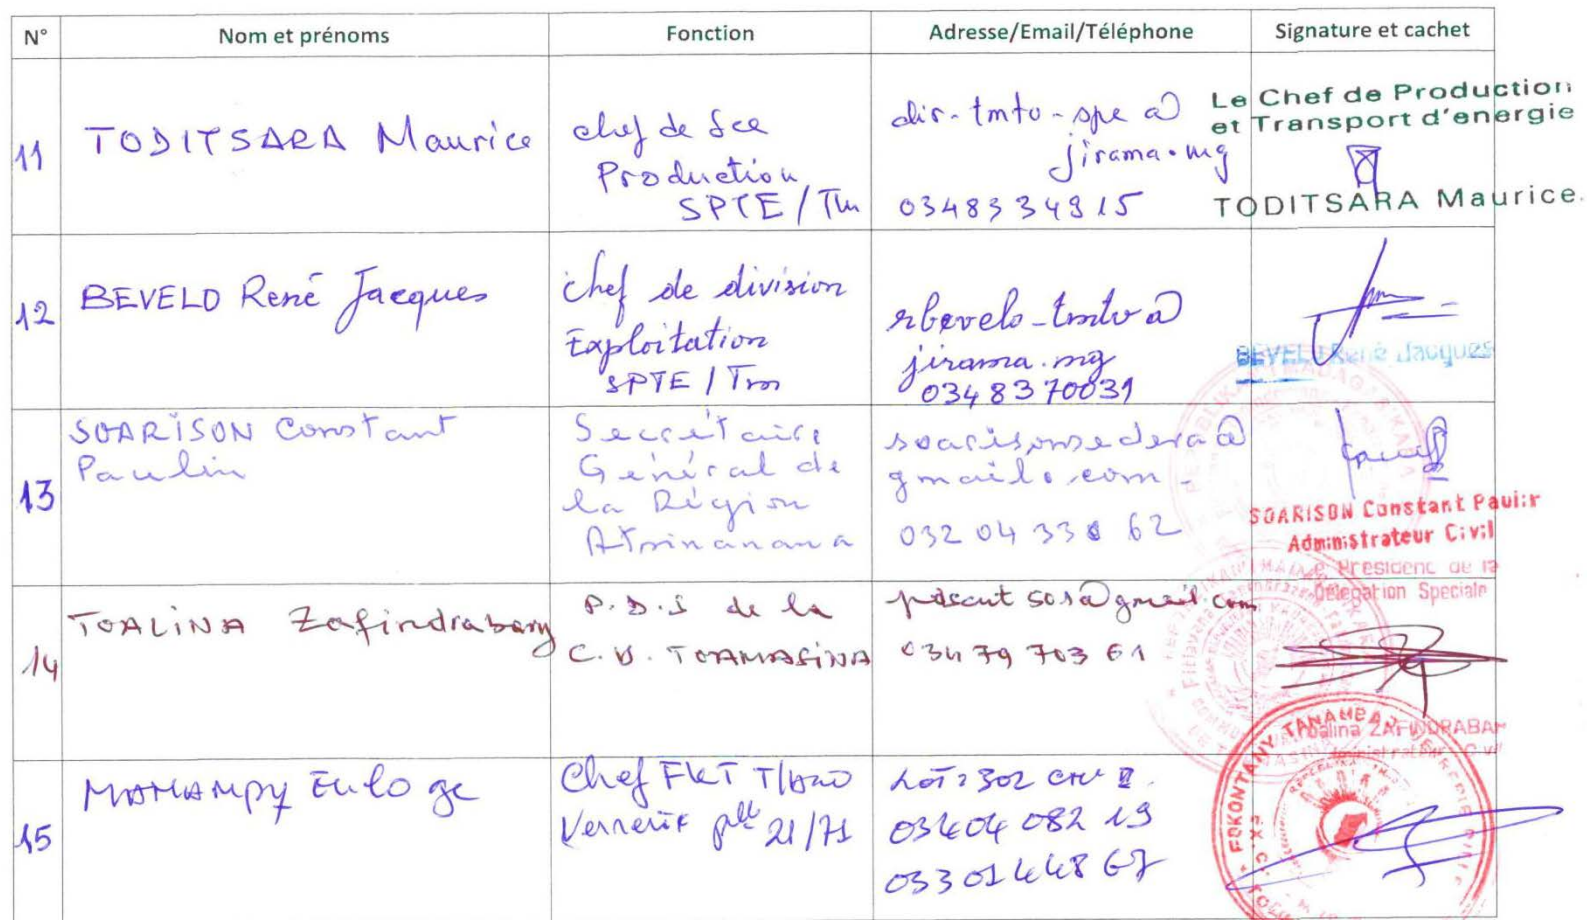 N° Nom et prénoms Fonction Adresse/Email/Téléphone Signature et cachet
11 TODITSARA Maurice
chef de Sce
Production
SPTE / Tm
dir-tmto-spe@
jirama.mg
0348334915
Le Chef de Production
et Transport d'energie
TODITSARA Maurice.
12 BEVELO René Jacques
Chef de division
Exploitation
SPTE / Tm
rbevelo-tmto@
jirama.mg
0348370031
BEVELO René Jacques
13 SOARISON Constant
Paulin
Secrétaire
Général de
la Région
Atsinanana
soarisonsedera@
gmail.com
032 04 33 62
SOARISON Constant Paulin
Administrateur Civil
14 TOALINA Zafindrabary
P.D.S de la
C.U. TOAMASINA
@gmail.com
034 79 703 61
Président de la
Délégation Spéciale
Toalina ZAFINDRABARY
Administrateur Civil
15 MAHAMPY Euloge
Chef FKT T/
Verrerie plle 21/71
LOT: 302
03404 082 19
FOKONTANY TANAMBAO VERRERIE